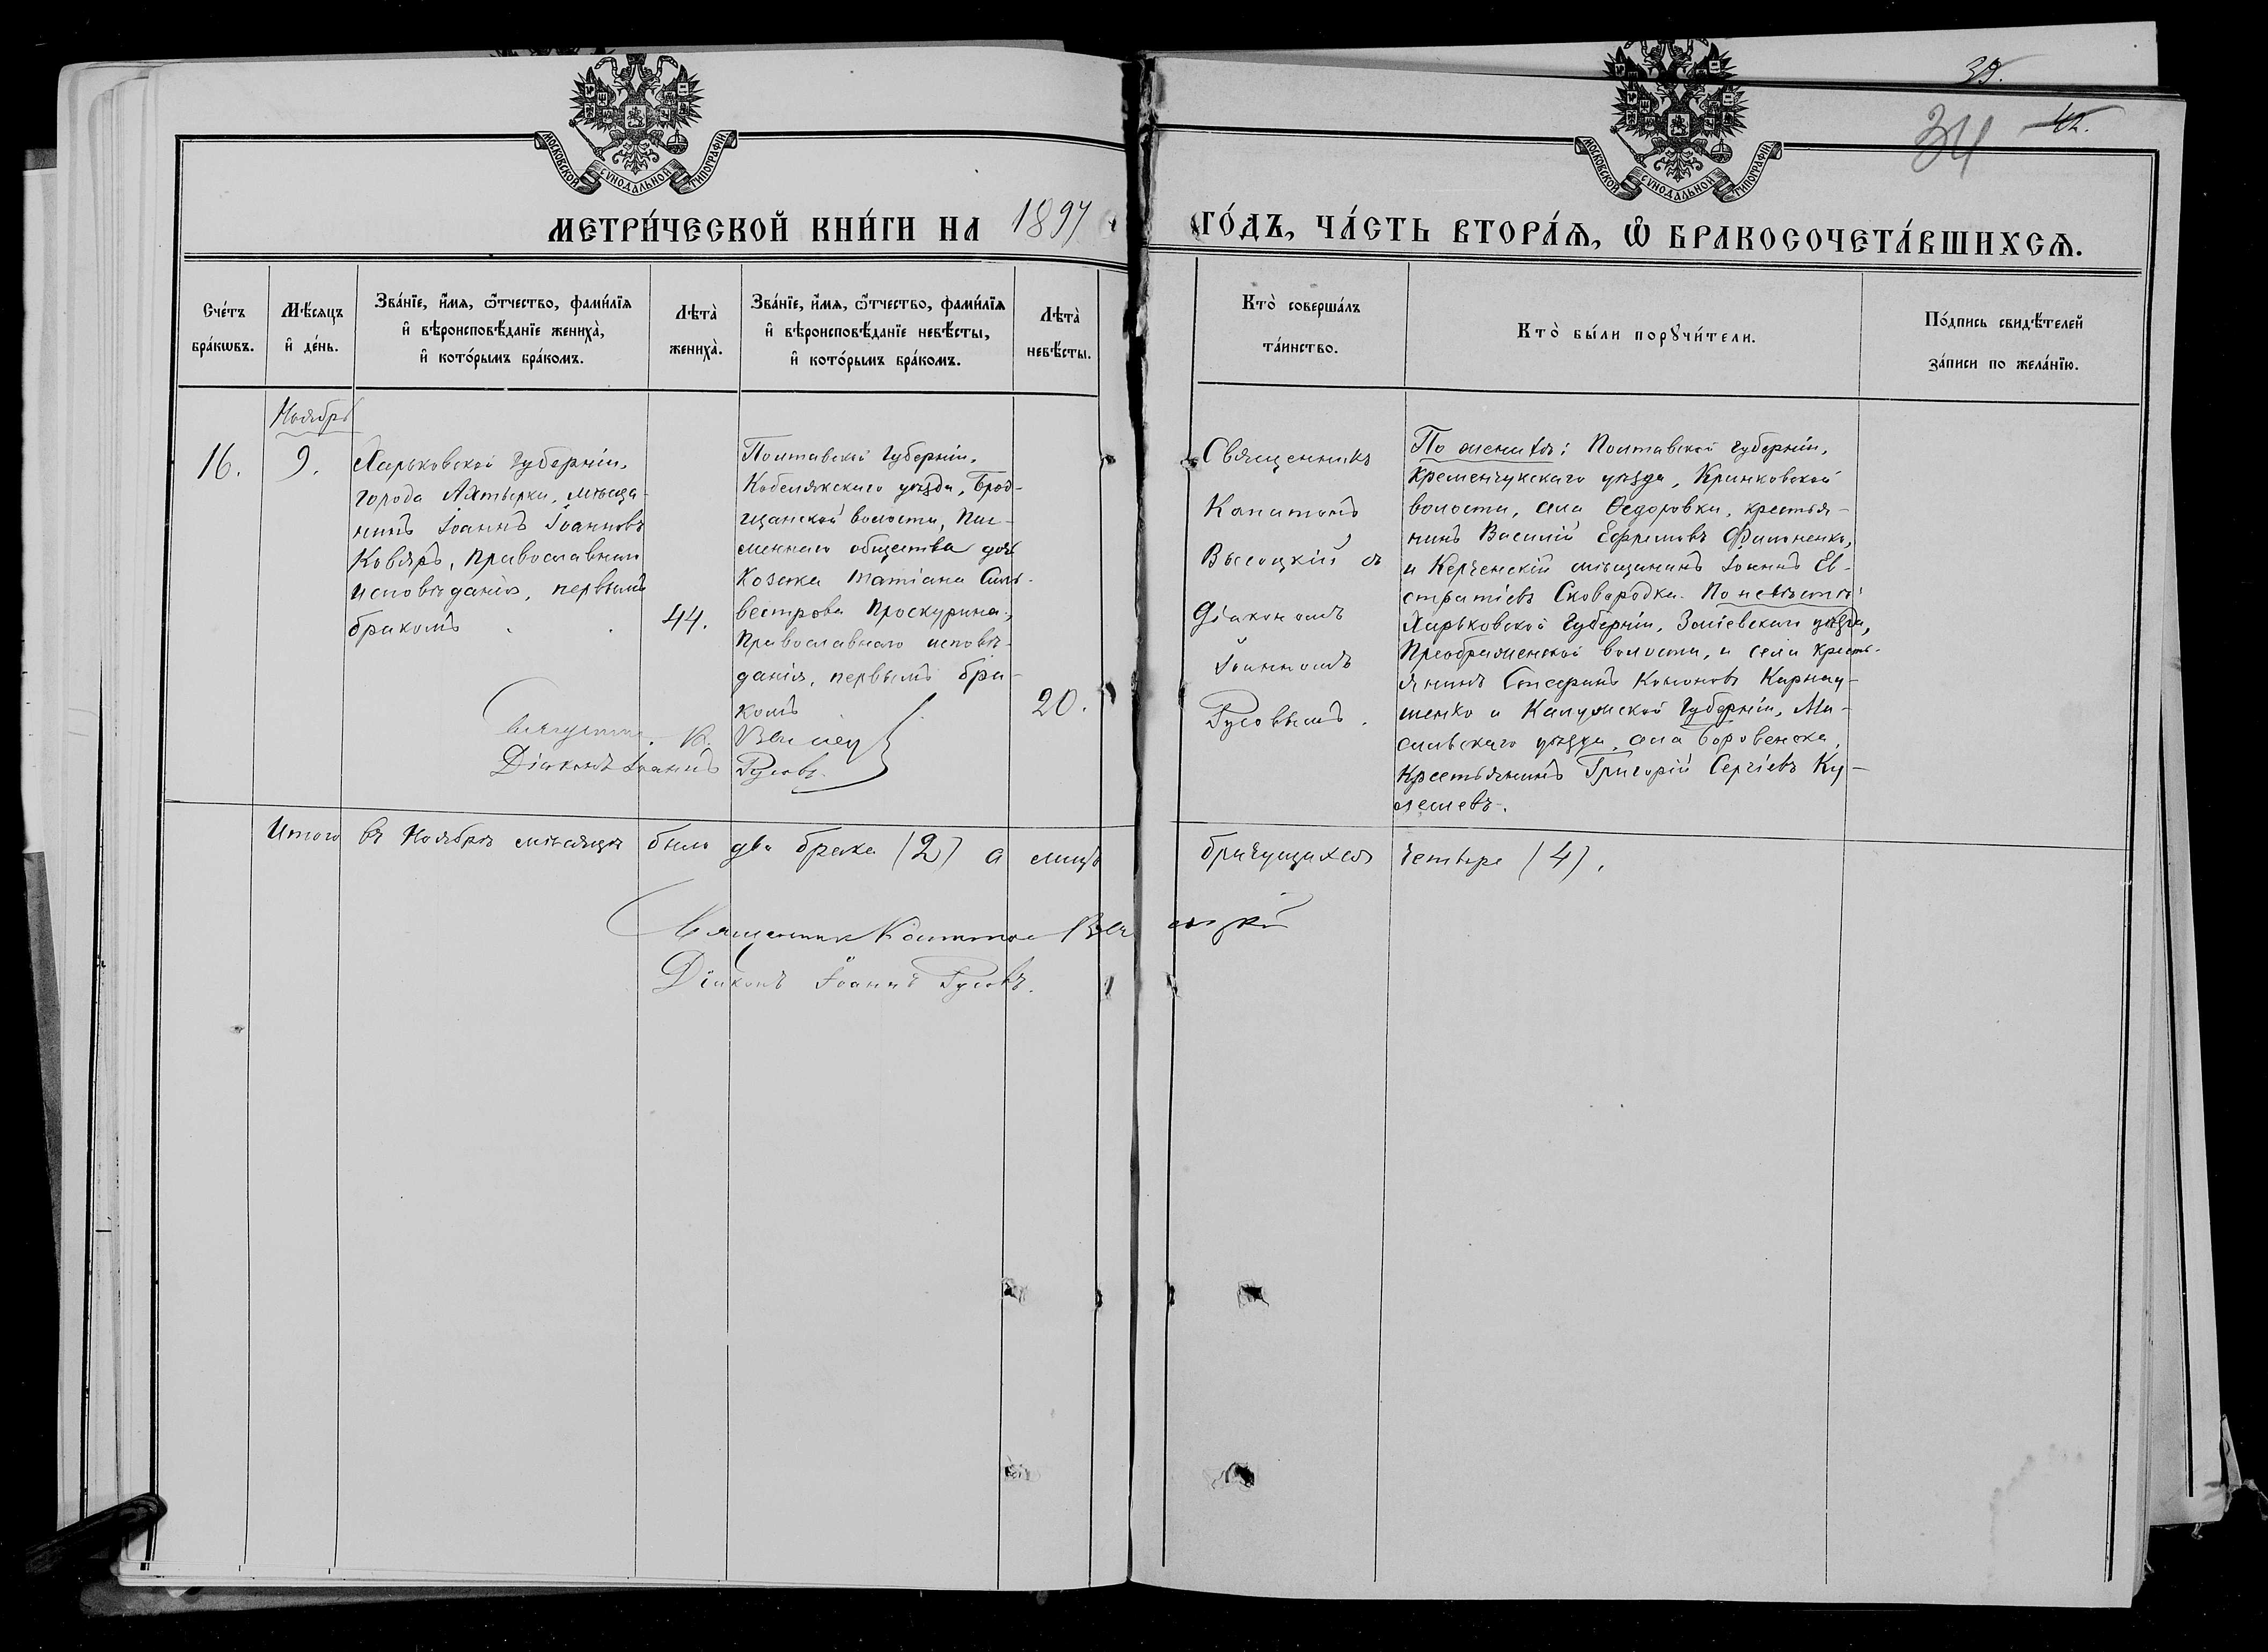 39.
34 42.
МОСКОВСКОЙ СѴНОДАЛЬНОЙ ТИПОГРАФІИ
МОСКОВСКОЙ СѴНОДАЛЬНОЙ ТИПОГРАФІИ
МЕТРИ́ЧЕСКОЙ КНИ́ГИ НА 1897
ГО́ДЪ, ЧА́СТЬ ВТОРА́Ѧ, Ѡ҆ БРАКОСОЧЕТА́ВШИХСѦ.
Сче́тъ
бра́кѡвъ.
Мѣ́сяцъ
и҆ де́нь.
Зва́нїе, и҆́мѧ, ѻ҆́тчество, фами́лїѧ
и҆ вѣроисповѣ́данїе жениха̀,
и҆ кото́рымъ бра́комъ.
Лѣта̀
жениха̀.
Зва́нїе, и҆́мѧ, ѻ҆́тчество, фами́лїѧ
и҆ вѣроисповѣ́данїе невѣ́сты,
и҆ кото́рымъ бра́комъ.
Лѣта̀
невѣ́сты.
Кто̀ соверша́лъ
та́инство.
Кто̀ бы́ли порꙋчи́тели.
По́дпись свидѣ́телей
за́писи по жела́нїю.
Ноябрь
16.
9.
Харьковской Губерніи,
города Ахтырки, мѣща-
нинъ Іоаннъ Іоанновъ
Коваръ, православнаго
исповѣданія, первымъ
бракомъ
44.
Полтавской Губерніи,
Кобелякскаго уѣзда, Брод-
щанской волости,
общества дочь
Козака Татіана Силь-
вестрова Проскурина,
Православнаго исповѣ-
данія, первымъ бра-
комъ
20.
Священникъ К.
Діаконъ Іоаннъ Русовъ
Священникъ
Капитонъ
Высоцкій съ
Діакономъ
Іоанномъ
Русовымъ.
По женихѣ: Полтавской Губерніи,
Кременчукскаго уѣзда, Кринковской
волости, села Ѳедоровки, крестья-
нинъ Василій Ефремовъ Филоненко,
и Керченскій мѣщанинъ Іоаннъ Ев-
стратіевъ Сковородка. По невѣстѣ:
Харьковской Губерніи, Зміевскаго уѣзда,
Преображенской волости, и села кресть-
янинъ Кононовъ Карнау-
шенко и Калужской Губерніи, Ма-
сальскаго уѣзда, села Боровенска,
Крестьянинъ Григорій Сергіевъ Ку-
лешевъ.
Итого въ Ноябрѣ мѣсяцѣ было два брака (2) а лицъ брачущихся четыре (4).
Священникъ Капитонъ Высоцкій
Діаконъ Іоаннъ Русовъ.